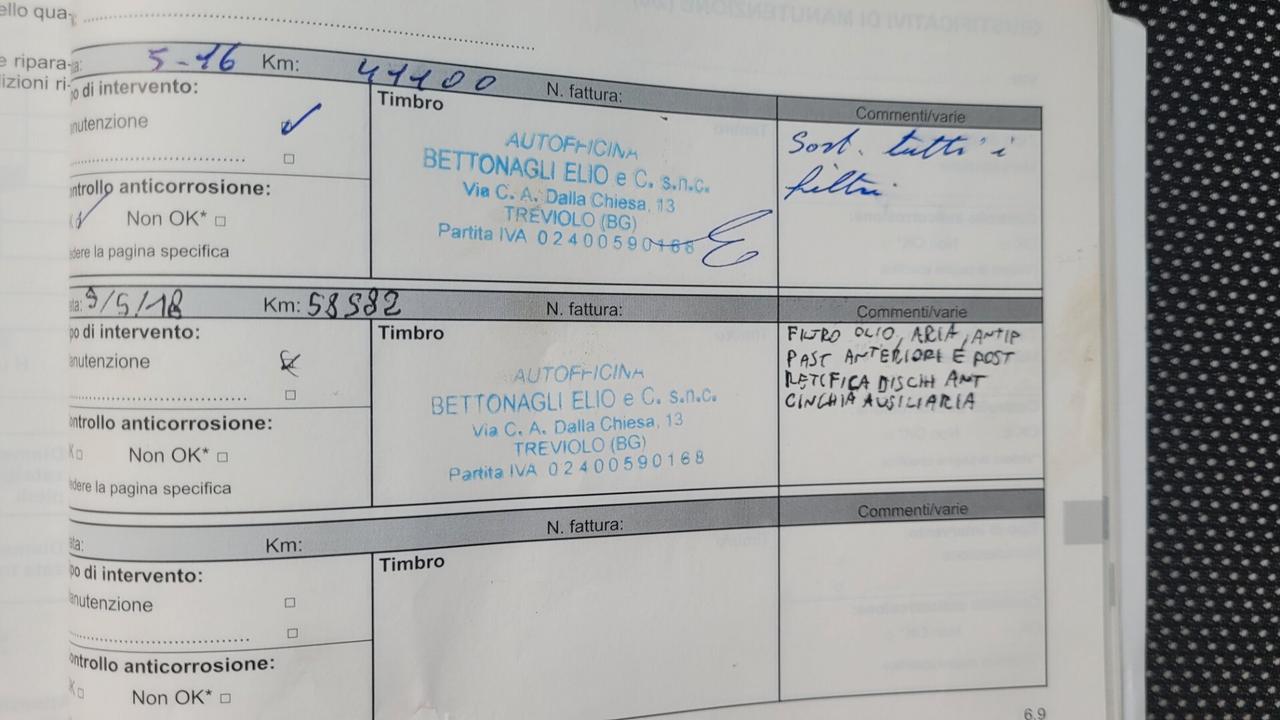 ello qua-
e ripara-
izioni ri-
a: 5-16 Km: 41100 N. fattura: Commenti/varie
po di intervento:
Timbro
nutenzione
ontrollo anticorrosione:
Non OK*
edere la pagina specifica
AUTOFFICINA
BETTONAGLI ELIO e C. s.n.c.
Via C. A. Dalla Chiesa, 13
TREVIOLO (BG)
Partita IVA 02400590168
Sost. tutti i
filtri
ata: 9/5/18 Km: 58582 N. fattura: Commenti/varie
po di intervento:
Timbro
anutenzione
ontrollo anticorrosione:
K Non OK*
edere la pagina specifica
AUTOFFICINA
BETTONAGLI ELIO e C. s.n.c.
Via C. A. Dalla Chiesa, 13
TREVIOLO (BG)
Partita IVA 02400590168
FILTRO OLIO, ARIA, ANTIP
PAST ANTERIORI E POST
RETIFICA DISCHI ANT
CINGHIA AUSILIARIA
ata: Km: N. fattura: Commenti/varie
po di intervento:
Timbro
anutenzione
ontrollo anticorrosione:
K Non OK*
6.9